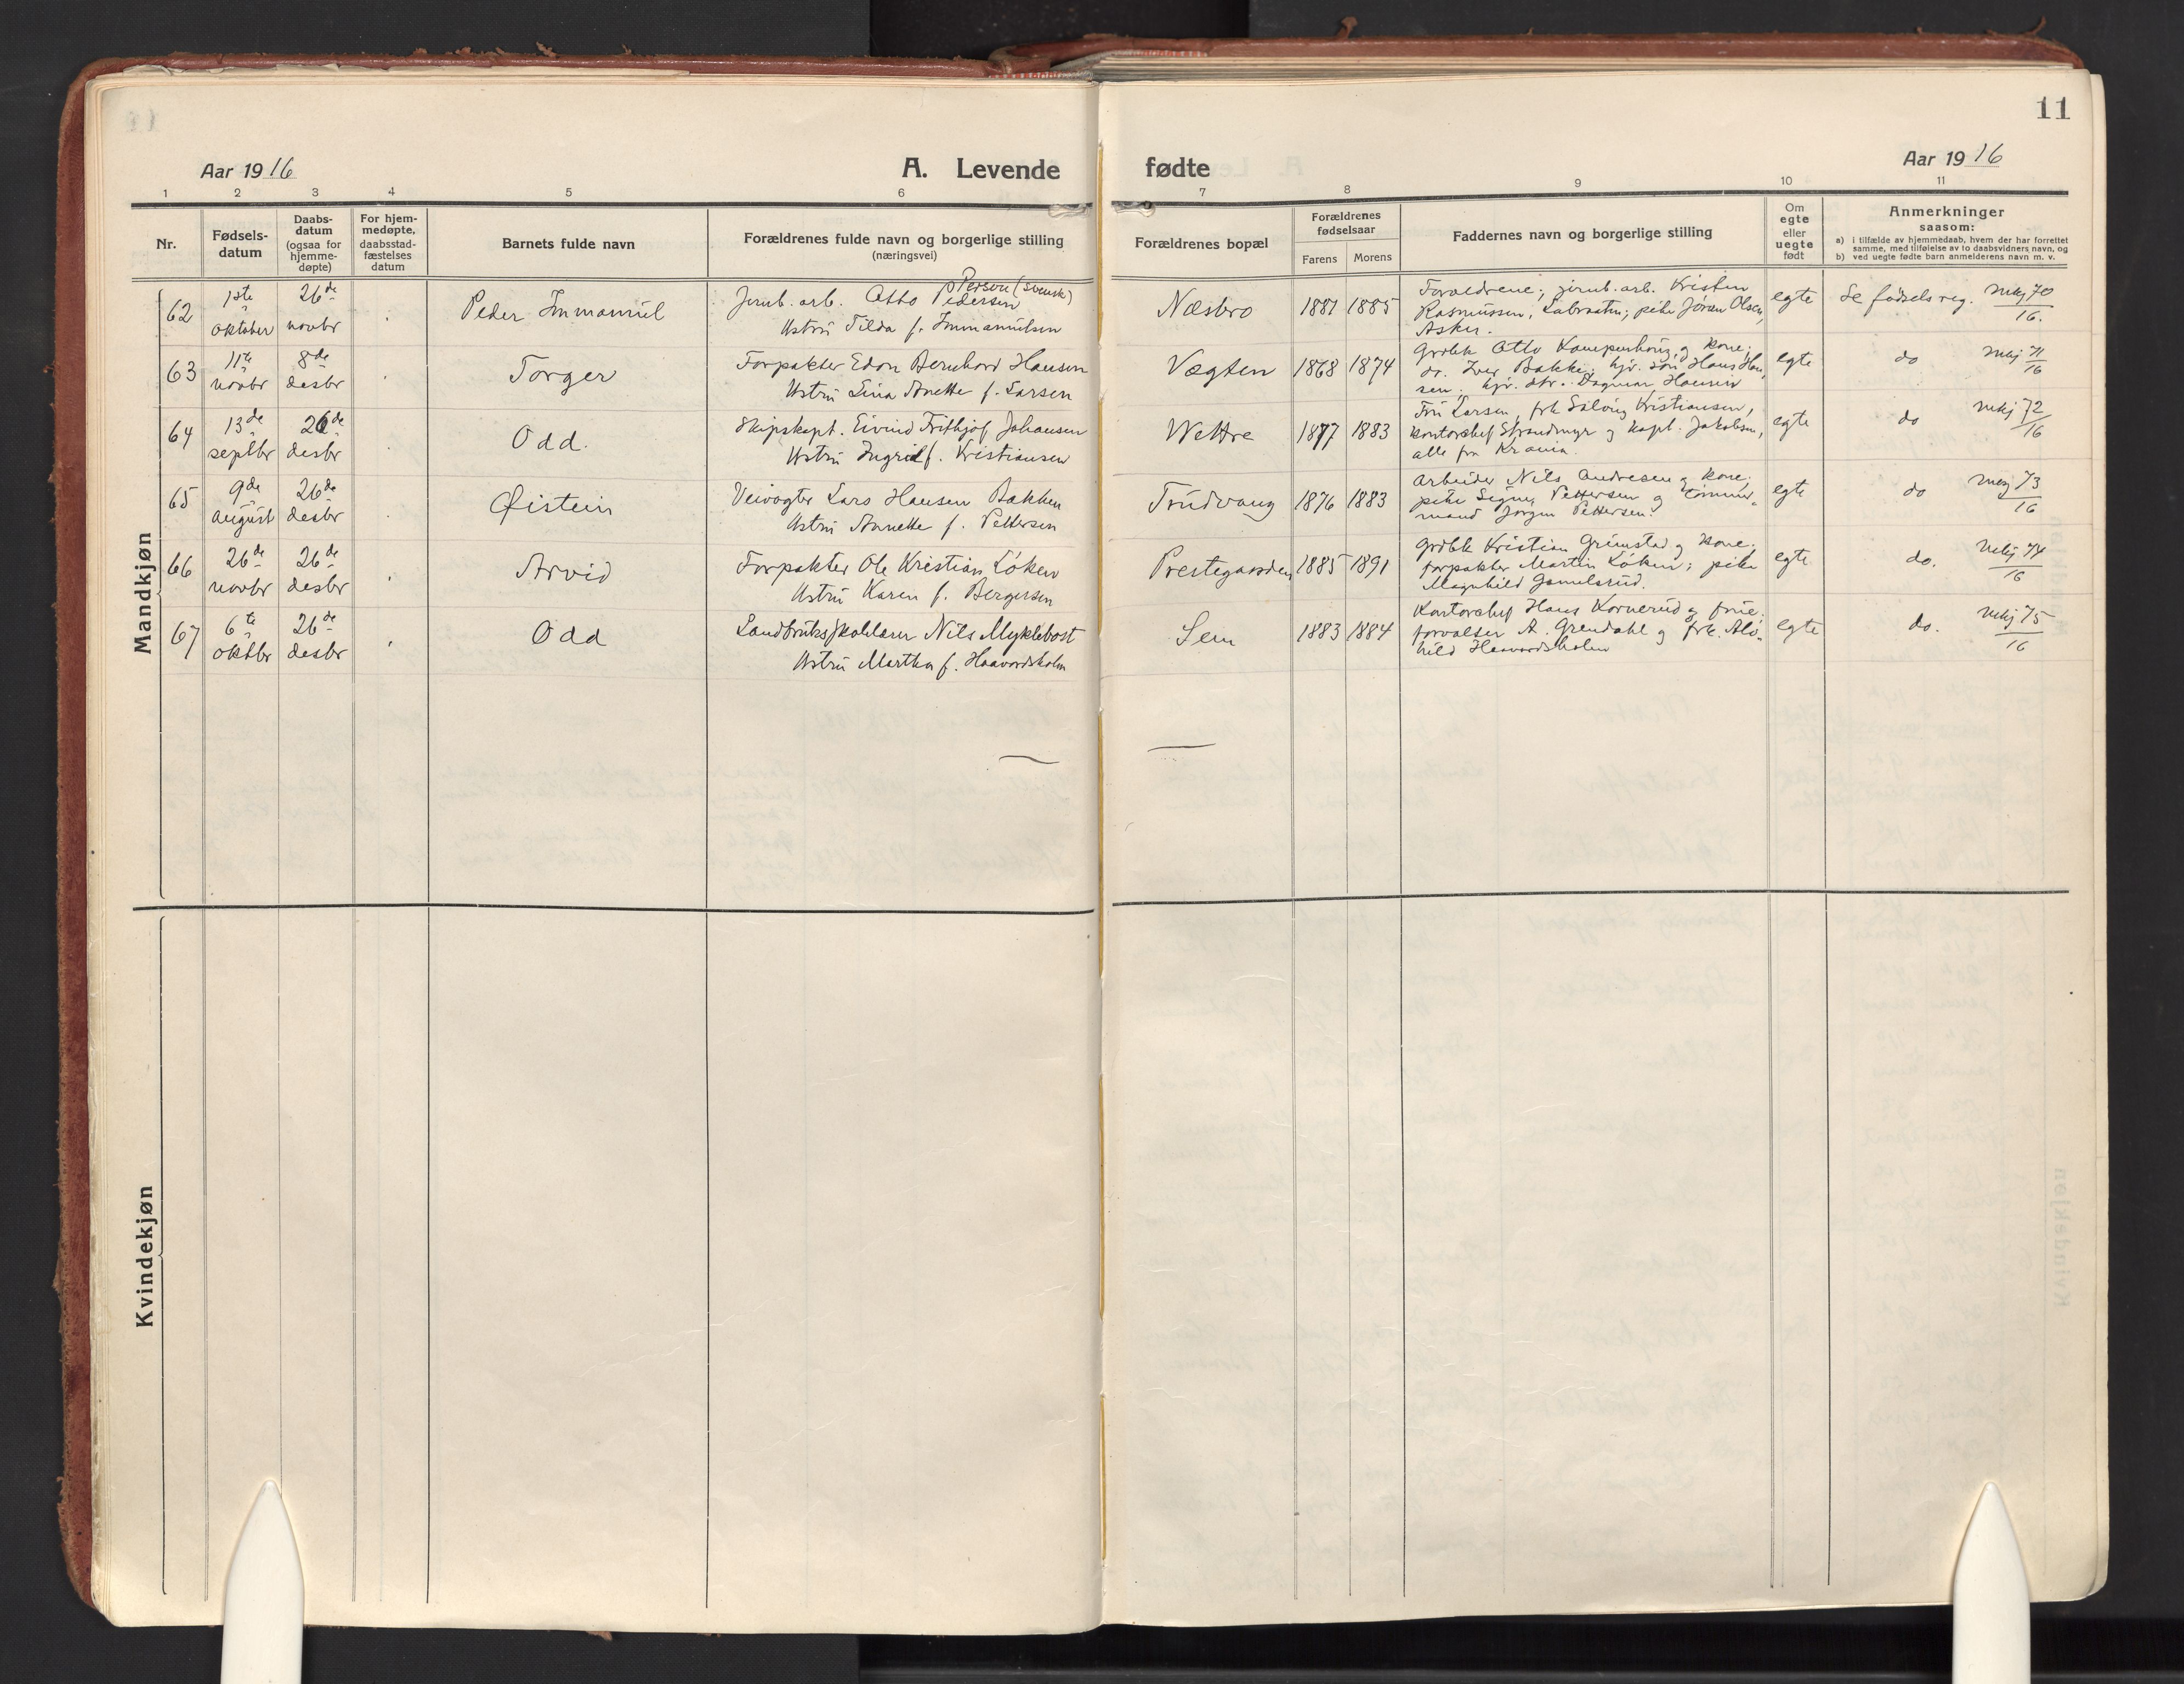 11
Aar 1916
A. Levende
fødte
Aar 1916
1 2 3 4 5 6 7 8 9 10 11
Nr.
Fødsels-
datum
Daabs-
datum
(ogsaa for
hjemme-
døpte)
For hjem-
medøpte,
daabsstad-
fæstelses
datum
Barnets fulde navn
Forældrenes fulde navn og borgerlige stilling
(næringsvei)
Forældrenes bopæl
Forældrenes
fødselsaar
Farens Morens
Faddernes navn og borgerlige stilling
Om
egte
eller
uegte
født
Anmerkninger
saasom:
a) i tilfælde av hjemmedaab, hvem der har forrettet
samme, med tilføielse av to daabsvidners navn, og
b) ved uegte fødte barn anmelderens navn m. v.
Mandkjøn
62
1ste
oktober
26de
novbr
Peder Immanuel
Person (svensk)
Jernb. arb. Otto Pedersen
Ustru Tilda f. Immanuelsen
Næsbro
1881 1885
Foreldrene; jernb. arb. Kristen
Rasmussen, Labraaten; pike Jøran Olsen,
Asker.
egte
Se fødselsreg. 70
16.
63
11te
novbr
8de
desbr
Torger
Forpakter Edon Bernhard Hansen
Ustru Lina Anette f. Larsen
Vægten
1868 1874
Grdbk Otto Kampenhaug og kone;
do. Iver Bakke; hjv. søn Hans Han-
sen; hjv. dtr. Dagmar Hansen
egte
do 71
16
64
13de
septbr
26de
desbr
Odd.
Skipskapt. Eivind Frithjof Johansen
Ustru Ingrid f. Kristiansen
Wettre
1877 1883
Fru Larsen, frk Solveig Kristiansen,
kontorchef Strandmyr og kapt. Jakobsen,
alle fra Krania.
egte
do 72
16
65
9de
august
26de
desbr
Øistein
Veivogter Lars Hansen Bakken
Ustru Annette f. Pettersen
Trudvang
1876 1883
Arbeider Nils Andresen og kone;
pike Signe Pettersen og tømmer-
mand Jørgen Pettersen.
egte
do 73
16
66
26de
novbr
26de
desbr
Arvid
Forpakter Ole Kristian Løken
Ustru Karen f. Bergersen
Prestegaarden
1885 1891
Grdbk Kristian Grimstad og kone;
forpakter Martin Løken; pike
Magnhild Gamelsrud.
egte
do. 74
16
67
6te
oktbr
26de
desbr
Odd
Landbruksskolelærer Nils Myklebost
Ustru Martha f. Haavardsholm
Sem
1883 1884
Kontorchef Hans Kornerud og frue;
forvalter A. Grendahl og frk. Alv-
hild Haavardsholm
egte
do. 75
16
Kvindekjøn